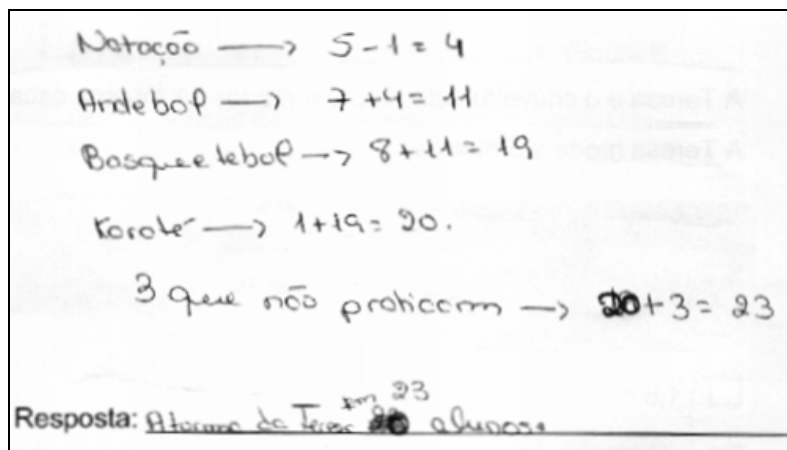 Natação → 5 - 1 = 4
Andebol → 7 + 4 = 11
Basqueetebol → 8 + 11 = 19
Karaté → 1 + 19 = 20.
3 que não praticam → 20 + 3 = 23
Resposta: A turma da Teresa tem 23 alunos.